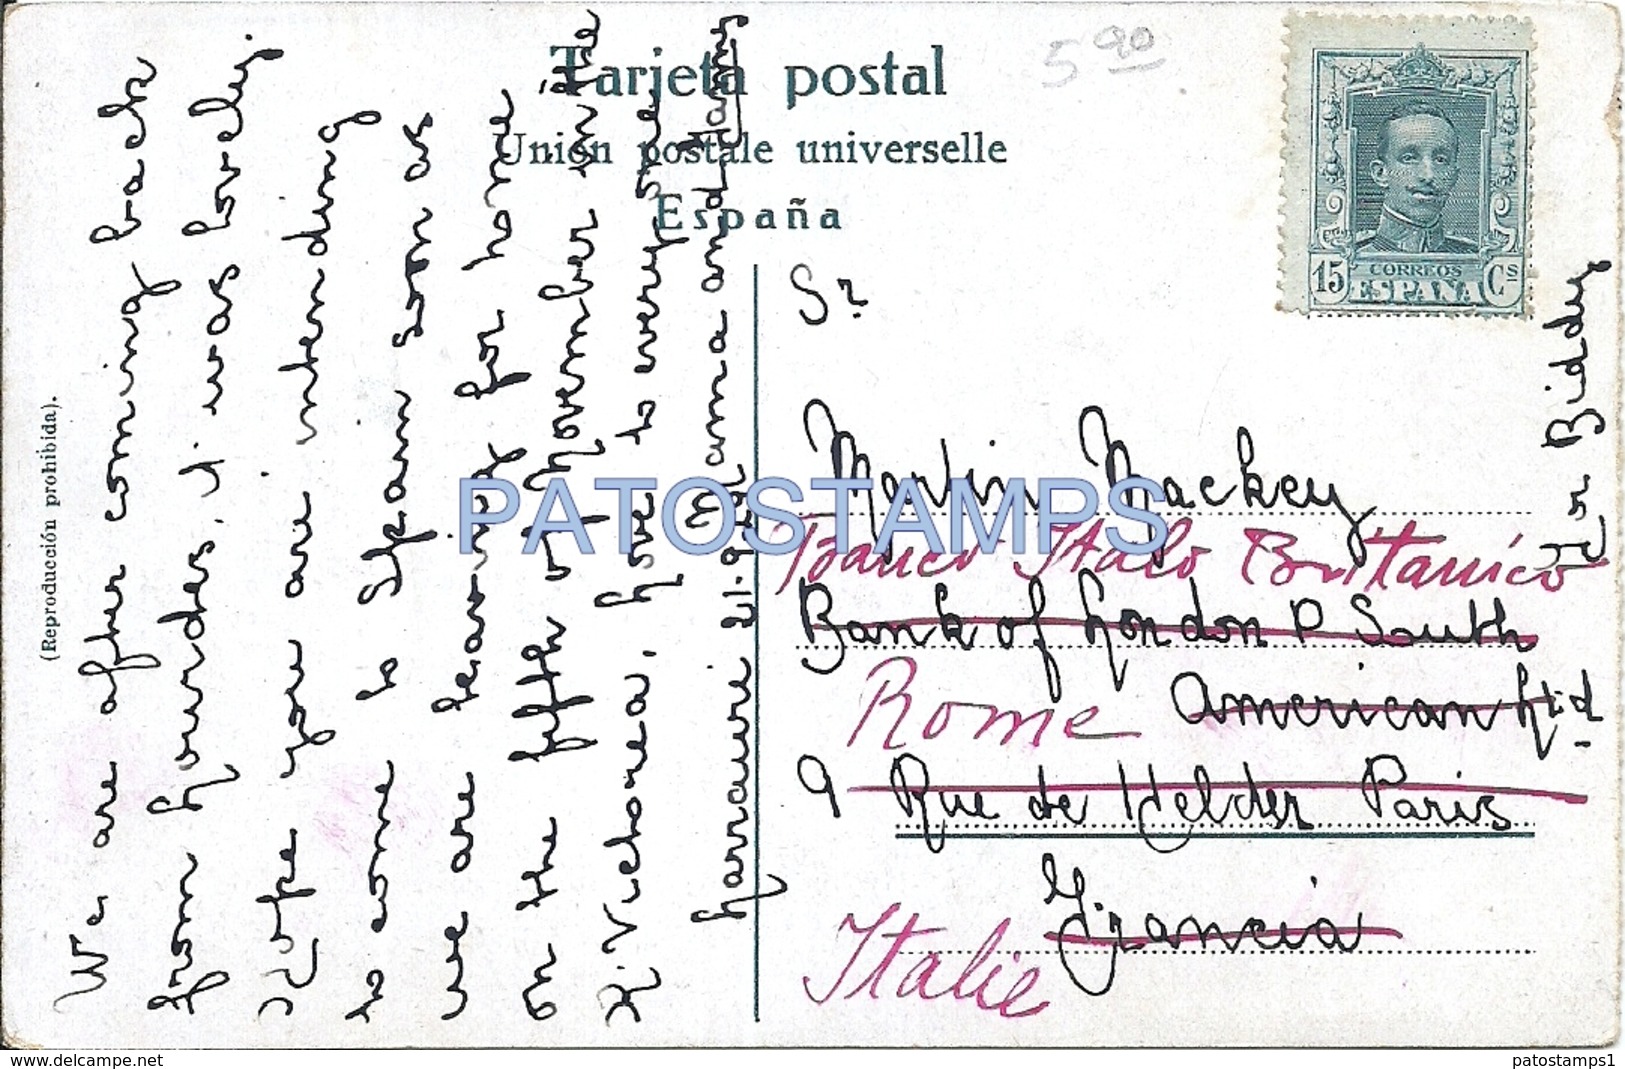 Tarjeta postal
Unión postale universelle
España
5 90
CORREOS
15 ESPAÑA Cs
(Reproducción prohibida).
We are after coming back
from Lourdes, it was lovely.
Hope you are intending
to come to Spain soon as
we are leaving for home
on the fifth of November in the
R. Victoria, love to every one
Mama and Hans
Larraure 21.9.
Sr
Martin Mackey
Banco Italo Britanico
Bank of London & South
Rome American Ltd
9 Rue de Helder Paris
Francia
Italie
For Biddy
PATOSTAMPS
www.delcampe.net
patostamps1